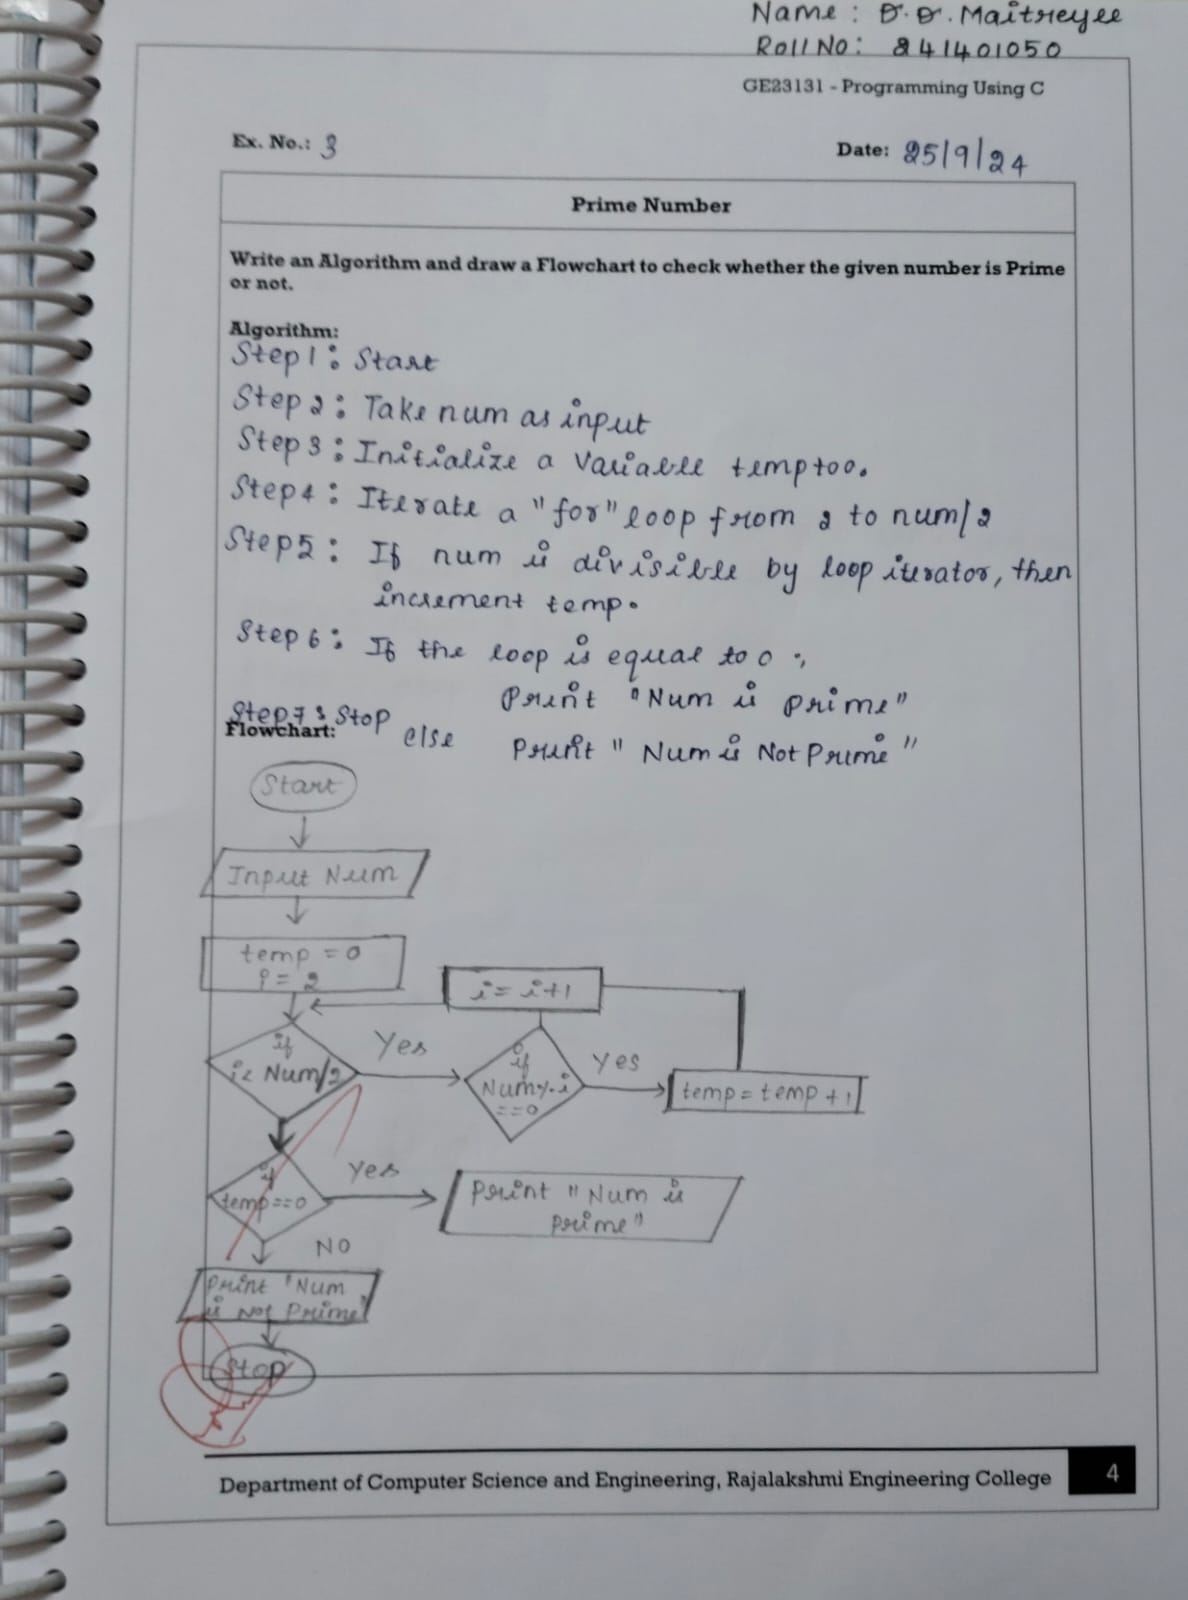 Name : D.D. Maitreyee
Roll No: 241401050
GE23131 - Programming Using C
Ex. No.: 3
Date: 25/9/24
Prime Number
Write an Algorithm and draw a Flowchart to check whether the given number is Prime
or not.
Algorithm:
Step 1: Start
Step 2: Take num as input
Step 3: Initialize a Variable temp to 0.
Step 4: Iterate a "for" loop from 2 to num/2
Step 5: If num is divisible by loop iterator, then
increment temp.
Step 6: If the loop is equal to 0 :,
Print "Num is prime"
Step 7: Stop
else Print "Num is Not Prime"
Flowchart:
Start
Input Num
temp = 0
i = 2
i = i+1
if
i< Num/2
Yes
if
Num%i
==0
Yes
temp = temp + 1
if
temp==0
Yes
Print "Num is
prime"
NO
Print "Num
is Not Prime"
Stop
Department of Computer Science and Engineering, Rajalakshmi Engineering College
4